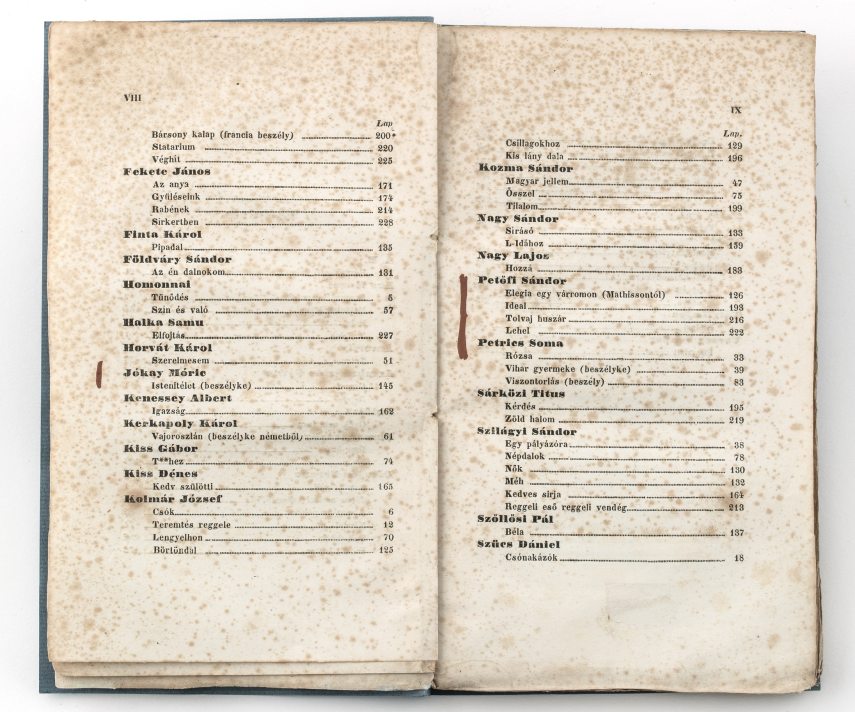 VIII
Lap
Bársony kalap (francia beszély) 200
Statarium 220
Véghit 225
Fekete János
Az anya 171
Gyűléseink 174
Rabének 214
Sirkertben 228
Finta Károl
Pipadal 135
Földváry Sándor
Az én dalnokom 131
Homonnai
Tünődés 5
Szin és való 57
Halka Samu
Elfojtás 227
Horvát Károl
Szerelmesem 51
Jókay Móric
Istenítélet (beszélyke) 145
Kenessey Albert
Igazság 162
Kerkapoly Károl
Vajoroszlán (beszélyke németből) 61
Kiss Gábor
T**hez 74
Kiss Dénes
Kedv szülötti 165
Kolmár József
Csók 6
Teremtés reggele 12
Lengyelhon 70
Börtöndal 125
IX
Lap.
Csillagokhoz 129
Kis lány dala 196
Kozma Sándor
Magyar jellem 47
Összel 75
Tilalom 199
Nagy Sándor
Sirásó 133
L-Idához 159
Nagy Lajos
Hozzá 183
Petőfi Sándor
Elegia egy várromon (Mathissontól) 126
Ideal 193
Tolvaj huszár 216
Lehel 222
Petrics Soma
Rózsa 33
Vihar gyermeke (beszélyke) 39
Viszontorlás (beszély) 83
Sárközi Titus
Kérdés 195
Zöld halom 219
Szilágyi Sándor
Egy pályázóra 38
Népdalok 78
Nők 130
Méh 132
Kedves sirja 164
Reggeli eső reggeli vendég 213
Szőllősi Pál
Béla 137
Szücs Dániel
Csónakázók 18